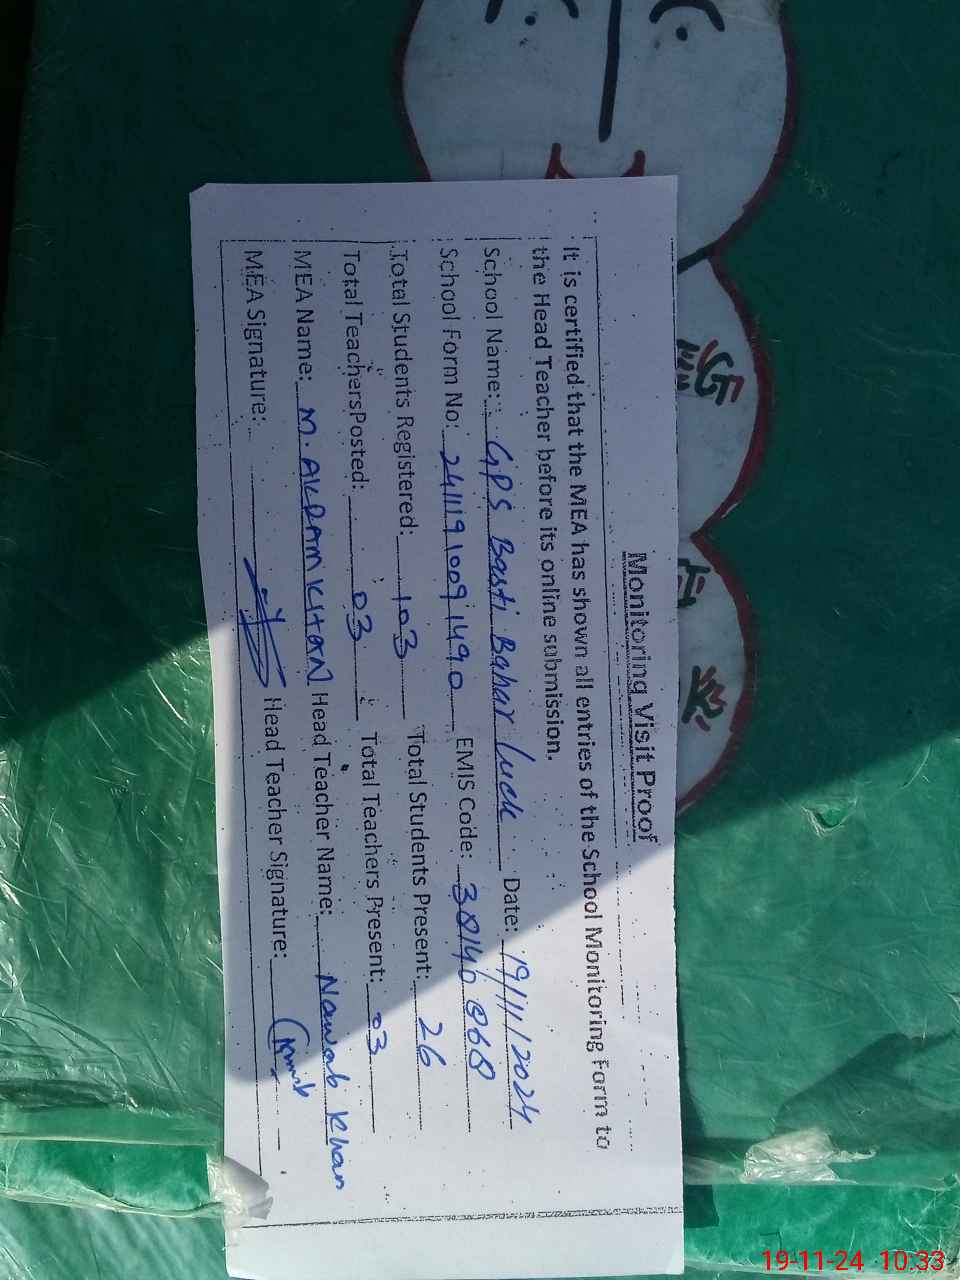 Monitoring Visit Proof
It is certified that the MEA has shown all entries of the School Monitoring Form to
the Head Teacher before its online submission.
School Name: GPS Basti Bahar Luck Date: 19/11/2024
School Form No: 2411191009 1490 EMIS Code: 38146068
Total Students Registered: 103 Total Students Present: 26
Total TeachersPosted: 03 Total Teachers Present: 03
MEA Name: M. AKRAM KHAN Head Teacher Name: Nawab Khan
MEA Signature: Head Teacher Signature:
19-11-24 10:33